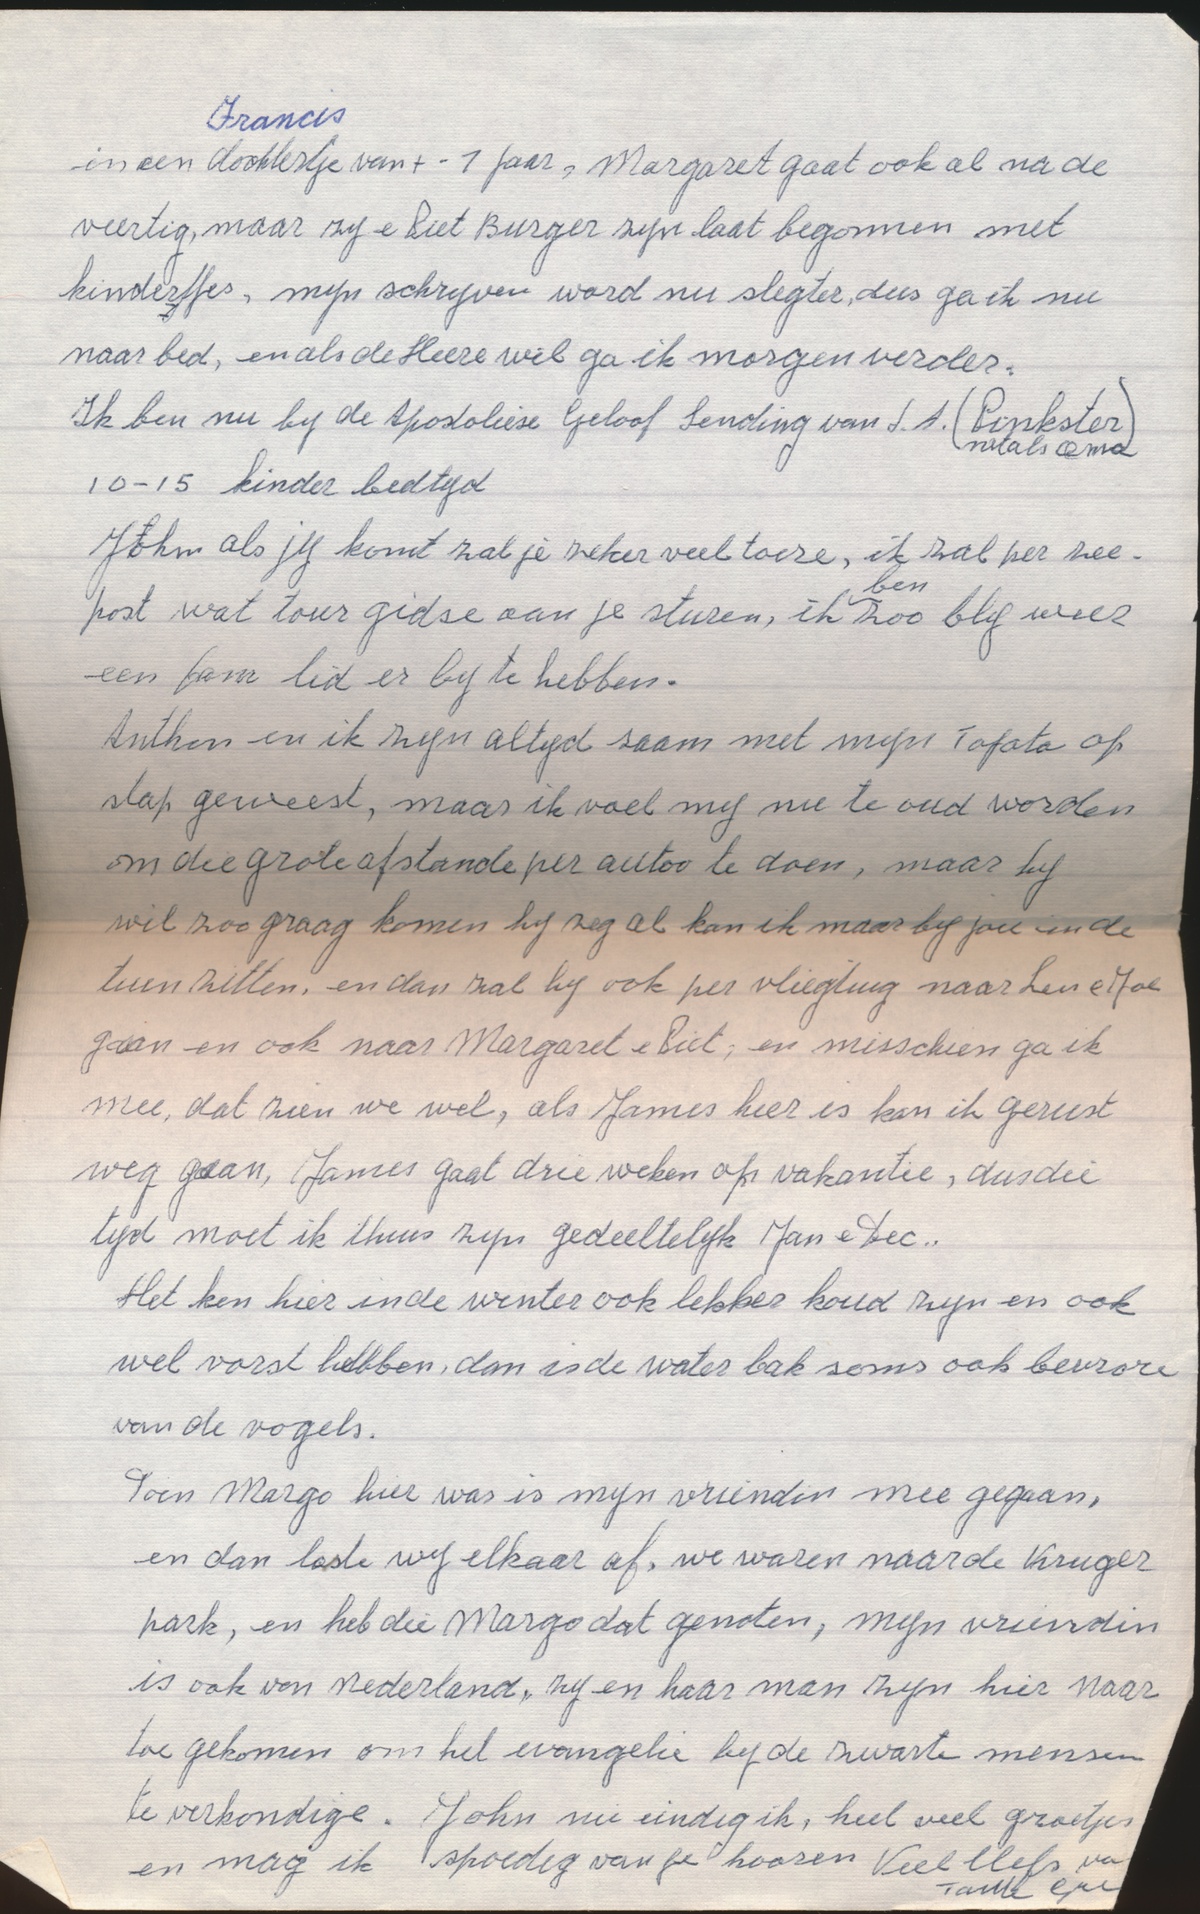 Francis
in een dochtertje van + - 1 jaar, Margaret gaat ook al na de
veertig, maar zy e Piet Burger zyn laat begonnen met
kindertjes, myn schryven word nu slegter, dus ga ik nu
naar bed, en als de Heere wil ga ik morgen verder.
Ik ben nu by de Apostoliese Geloof Sending van S.A. (Pinkster)
net als Oma
10-15 kinder bedtyd
John als jy komt zal je zeker veel toere, ik zal per zee-
ben
post wat tour gidse aan je sturen, ik zoo bly weer
een fam lid er by te hebben.
Anthon en ik zyn altyd saam met myn Tojota op
stap geweest, maar ik voel my nu te oud worden
om die grote afstande per autoo te doen, maar hy
wil zoo graag komen hy zeg al kan ik maar by jou in de
tuin zitten, en dan zal hy ook per vliegtuig naar Len e Joe
gaan en ook naar Margaret e Piet, en misschien ga ik
mee, dat zien we wel, als James hier is kan ik gerust
weg gaan, James gaat drie weken op vakantie, dus die
tyd moet ik thuis zyn gedeeltelyk Jan e Dec..
Het ken hier in de winter ook lekker koud zyn en ook
wel vorst hebben, dan is de water bak soms ook bevrore
van de vogels.
Toen Margo hier was is myn vriendin mee gegaan,
en dan loste wy elkaar af, we waren naar de Kruger
park, en heb die Margo dat genoten, myn vriendin
is ook van Nederland, zy en haar man zyn hier naar
toe gekomen om het evangelie by de zwarte mensen
te verkondige. John nu eindig ik, heel veel groetjes
en mag ik spoedig van je hooren Veel liefs va
Tante